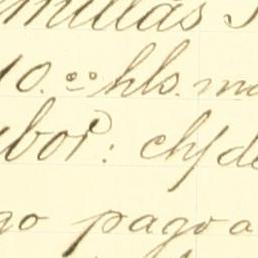 millas
10.00 hls. m
bor: ch/de
go pago a